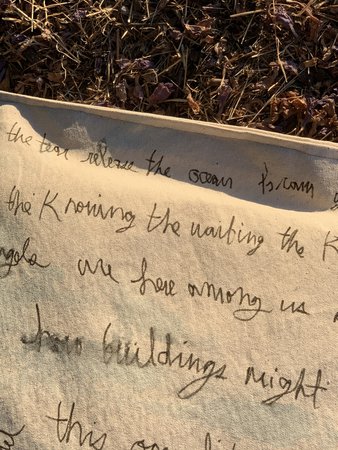 the tear release the ocean from
the Knowing the waiting the K
we here among us
how buildings might
this